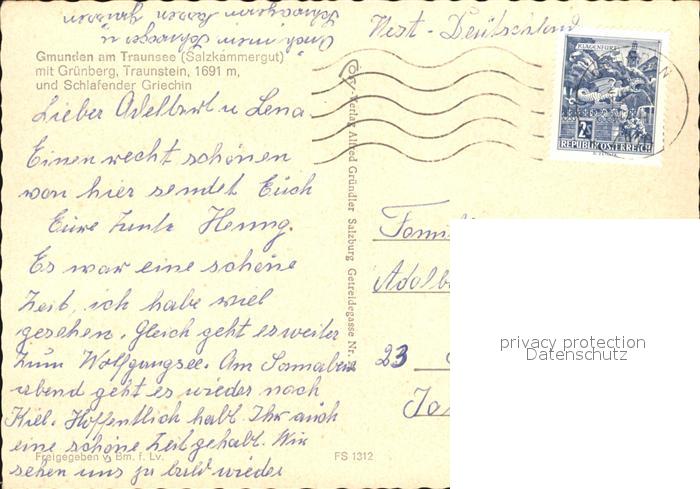 Gmunden am Traunsee (Salzkammergut)
mit Grünberg, Traunstein, 1691 m,
und Schlafender Griechin
Lieber Adelbert u Lena
Einen recht schönen
von hier sendet Euch
Eure Tante Henny.
Es war eine schöne
Zeit, ich habe viel
gesehen. Gleich geht es weiter
zum Wolfgangsee. Am Sonnabend
abend geht es wieder nach
Kiel. Hoffentlich habt Ihr auch
eine schöne Zeit gehabt. Wir
sehen uns ja bald wieder
Auch meinen
grüssen
Freigegeben v. Bm. f. Lv.
FS 1312
Verlag Alfred Gründler Salzburg Getreidegasse Nr.
West-Deutschland
KLAGENFURT
2S
REPUBLIK ÖSTERREICH
Famili
Adolb
23
privacy protection
Datenschutz